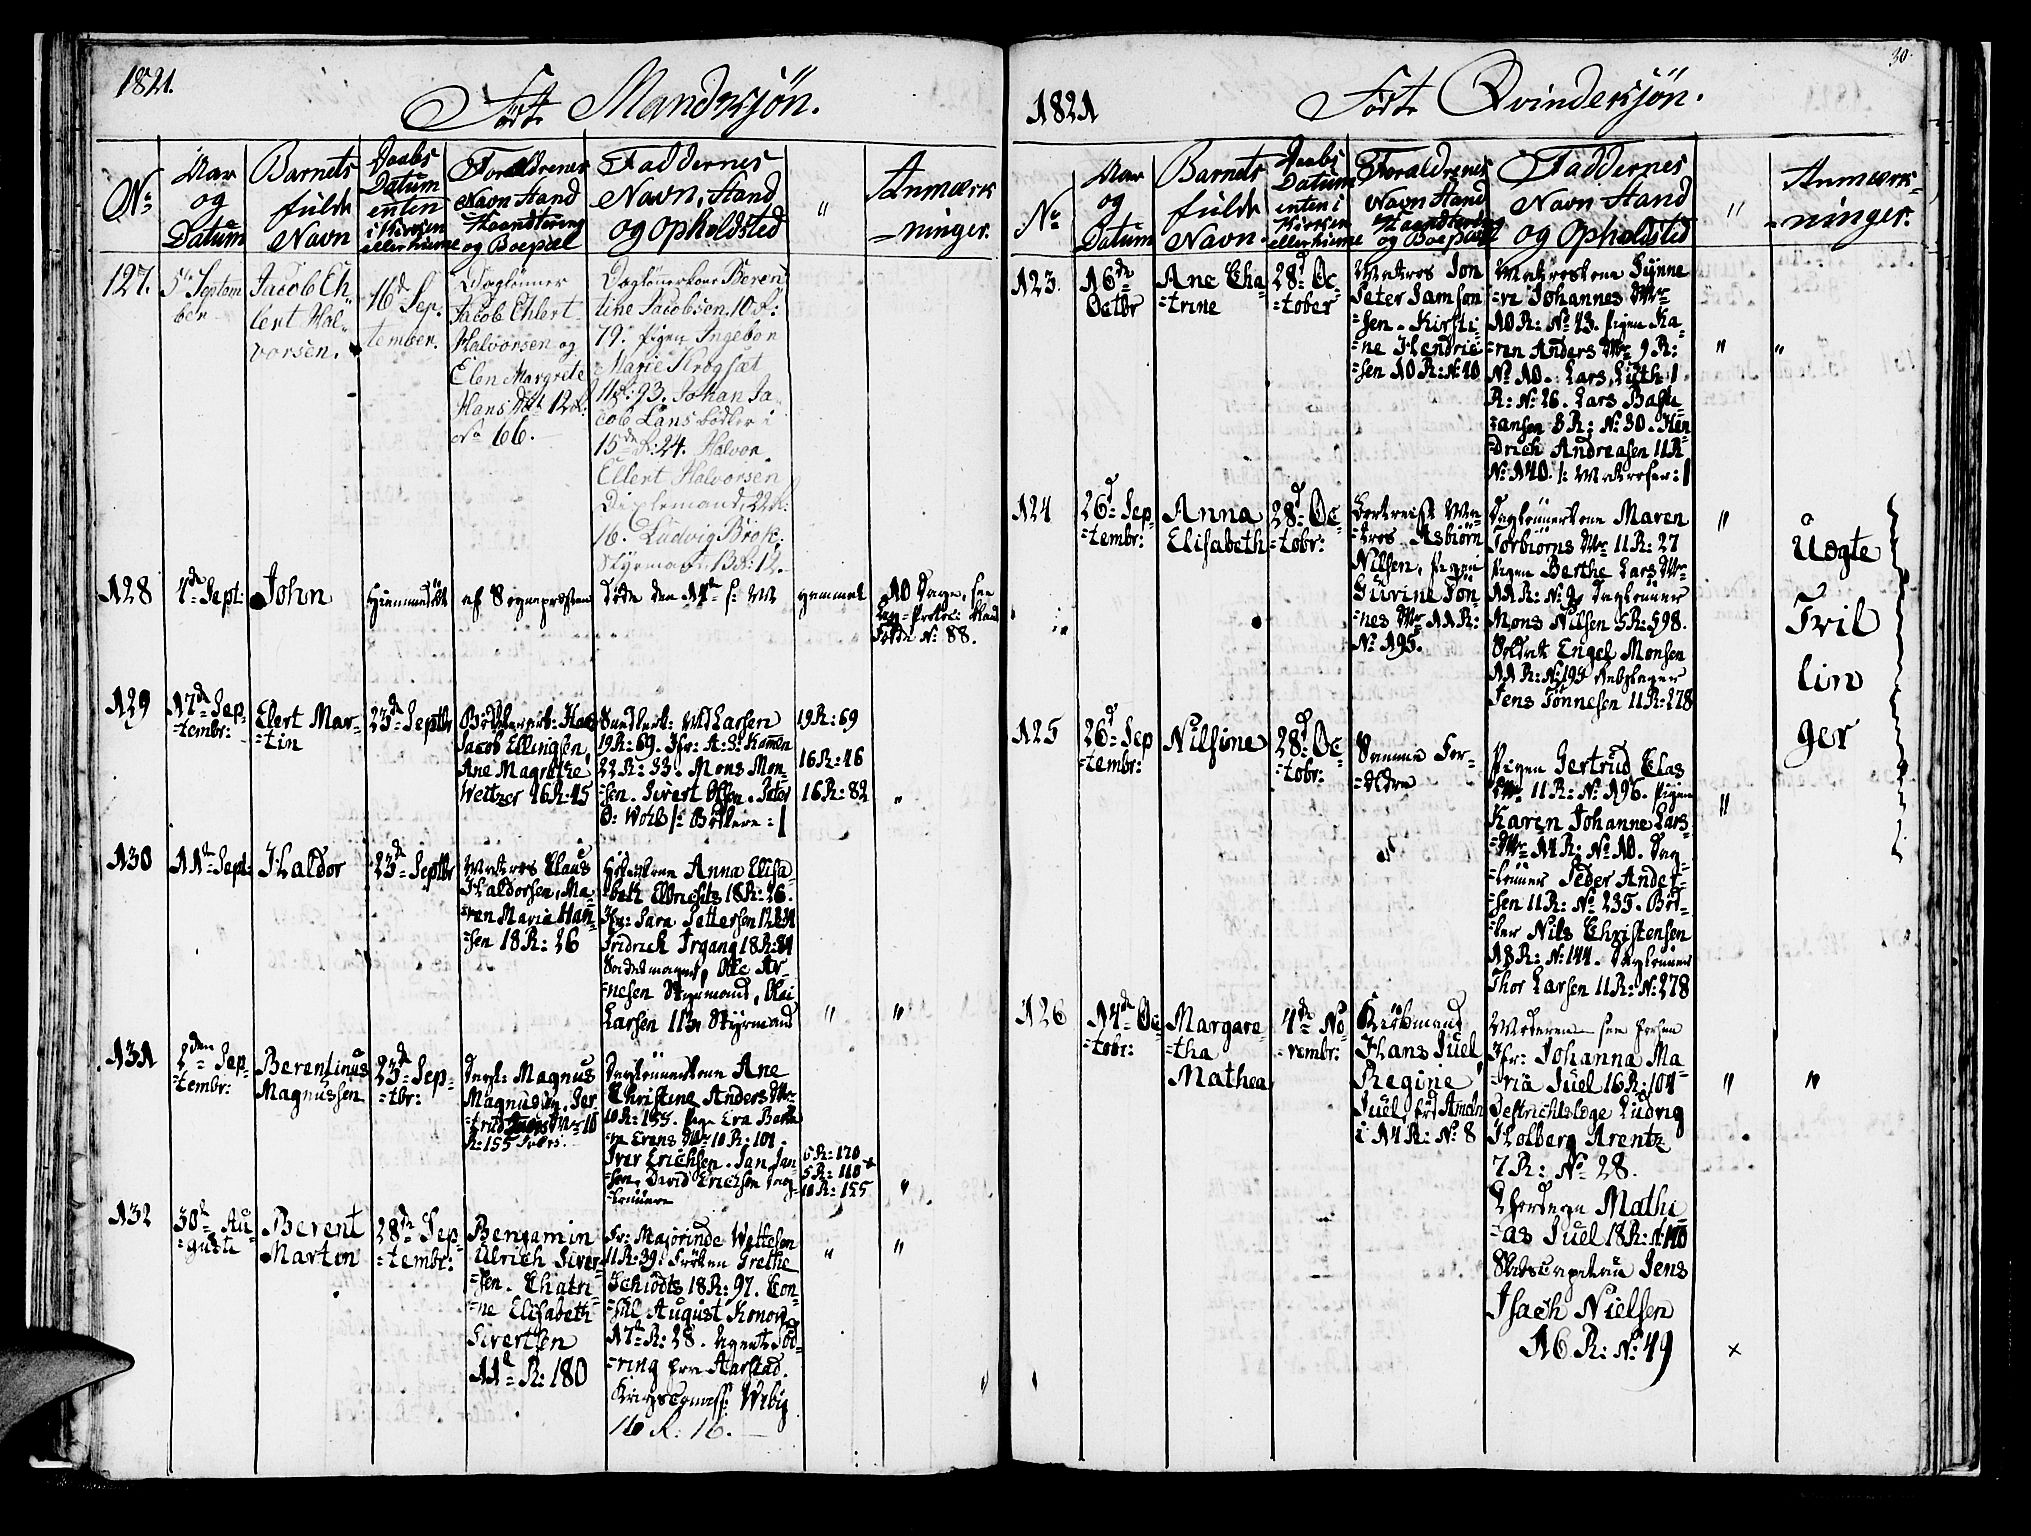 1821.
Født Mandkjön.
No
Aar
og
Datum
Barnets
fulde
Navn
Daabs
Datum
enten
i Kirken
eller hieme
Foraldrenes
Navn Stand
Haandtering
og Boepæl
Faddernes
Navn, Stand
og Opholdsted
"
Anmærk
=ninger.
127.
5te Septem
ber
Jacob Eh-
lert Hal-
vorsen.
16d Sep-
tember.
Daglønner
Jacob Ehlert
Halvorsen og
Elen Margrete
Hans Dtt 12 R:
No 66.
Daglønerkone Beren
tine Jacobsen 10 R:
79. Pigen Ingebor
Marie Krogsæt
11 R: 93. Johan Ja-
cob Lans bødker i
15de R: 24. Halvor
Ellert Halvorsen
22 R:
16. Ludvig Brok.
Styrmand, 13 R: 12.
128
4de Sept:
John
Hiemmedøbt
af Sognepræsten
døde den 14de s: M
gammel
10 Dage, see
døde No: 88.
129
17de Sep-
tembr:
Elert Mar-
=tin
23de Septbr
Jacob Ellingsen,
Ane Magrethe
Weltzer 16 R: 45
Larsen
19 R: 69. Jfr: A: S: Komen
22 R: 33. Mons Mon-
=sen. Sivert Olsen. Peter
D: Wolb /: Bødkere :/
19 R: 69
16 R: 46
16 R: 82
"
130
11te Sept:
Haldor
23de Septbr
Matros Claus
Haldorsen, Ma-
=ren Maria Han-
=sen 18 R: 26
Anna Elisa-
beth Elbrechts 18 R: 26.
Jfr: Sara Pettersen 12 R 31
Fridrich Irgang 18 R: 31
Ole Ar-
=nesen Styrmand, Olai
Larsen Styrmand
"
"
131
2den Sep-
tembr:
Berentinus
Magnussen
23de Sep-
=tbr:
Dagl: Magnus
Magnussen, Ger
=trud
R: 155
Dagløunerkone Ane
Christine Anders Dtr
10 R: 155.
10 R: 101.
Iver Erichsen. Jan Jan-
sen, David Erichsen Dag-
=lønnere
6 R: 170
5 R: 110 +
10 R: 155
"
132
30te Au
=guste
Berent
Marton
28de Sep-
=tembr:
Benjamin
Ulrich Siver-
=sen. Chatri-
=ne Elisabeth
Sivertsen
11te R: 180
Fr: Majorinde Wettesen
11 R: 39. Frøken Grethe
Schiödts 18 R: 97. Con-
=sul August Konow
17de R: 28. Agent Dö-
=ring Aarstad.
Wiby
R: 16.
"
"
1821
Født Qvindekjön.
30.
No
Aar
og
Datum
Barnets
fulde
Navn
Daabs
Datum
enten i
Kirken
eller hieme
Foraldrenes
Navn Stand
Haandtering
og Boepæl
Faddernes
Navn Stand
og Opholdsted
"
Anmærk-
=ninger.
123.
16de
Octbr
Ane Cha-
=trine
28d Oc-
=tober
Matros Jon
Peter Jamson
=sen. Kirsti-
=ne Hendric-
=sen 10 R: No: 40
Matroskone Synne-
=ve Johannes Dtr
10 R: No 43. Pigen Ka-
=ren Anders Dtr 9 R:
No 10. Lars Luth 1
R: No 26. Lars Basti-
=ansen 3 R: No 30. Hen-
=drich Andreasen 11 R
No 140. /: Matroser :/
"
"
124
26d Sep-
=tembr:
Anna
Elisabeth
28d Oc-
=tobr:
Bortreist Ma-
=tros Asbiörn
Nilsen, Pigen
Gurine Tön-
nes Dtr 11 R:
No 195.
Dagløunerkone Maren
Torbiörns Dtr 11 R: 27
Pigen Berthe Lars Dtr
11 R: No 9, Dagløuner
Mons Nilsen 5 R: 598.
Soldat Engel Monsen
11 R: No 195 Rebslager
Jens Tönnesen 11 R: 278
"
Uægte
Tril
lin
ger
125
26d Sep
=tembr:
Nilsine
28d Oc-
=tobr:
Samme For-
=ældre
Pigen Gertrud Clas
Dtr 11 R: No 196. Pigen
Karen Johanne Lars-
=Dtr 14 R: No 10. Dag-
=lønner Peder Ander-
=sen 11 R: No 235. Bød-
=ker Nils Christensen
18 R: No 144. Dagløuner
Thor Larsen 11 R: No 278
"
126
14de Oc-
=tobr:
Margare-
=tha
Mathea
4de No-
=vembr:
Kiöbmand
Hans Juel
Regine
Juel, fød Ameln
i 14 R: No 8
Moderen
Jfr: Johanna Ma-
=ria Juel 16 R: 104
Destrichtslæge Ludvig
Holberg Arentz
7 R: No 28.
Mathi-
=as Juel 18 R: No 110
Skibscapitain Jens
Isach Nielsen
16 R: No 49
"
"
×